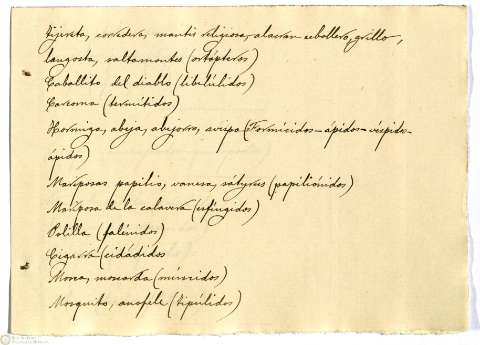 Tijereta, corredera, mantis religiosa, alacran cebollero, grillo,
langosta, saltamontes (ortópteros)
Caballito del diablo (libelúlidos)
Carcoma (termítidos)
Hormiga, abeja, abejorro, avispa (Formícidos - ápidos - véspidos -
ápidos)
Mariposas papilio, vanesa, sátyrus (papiliónidos)
Mariposa de la calavera (esfíngidos)
Polilla (falénidos)
Cigarra (cidádidos
Mosca, moscarda (múscidos)
Mosquito, anofele (tipúlidos)